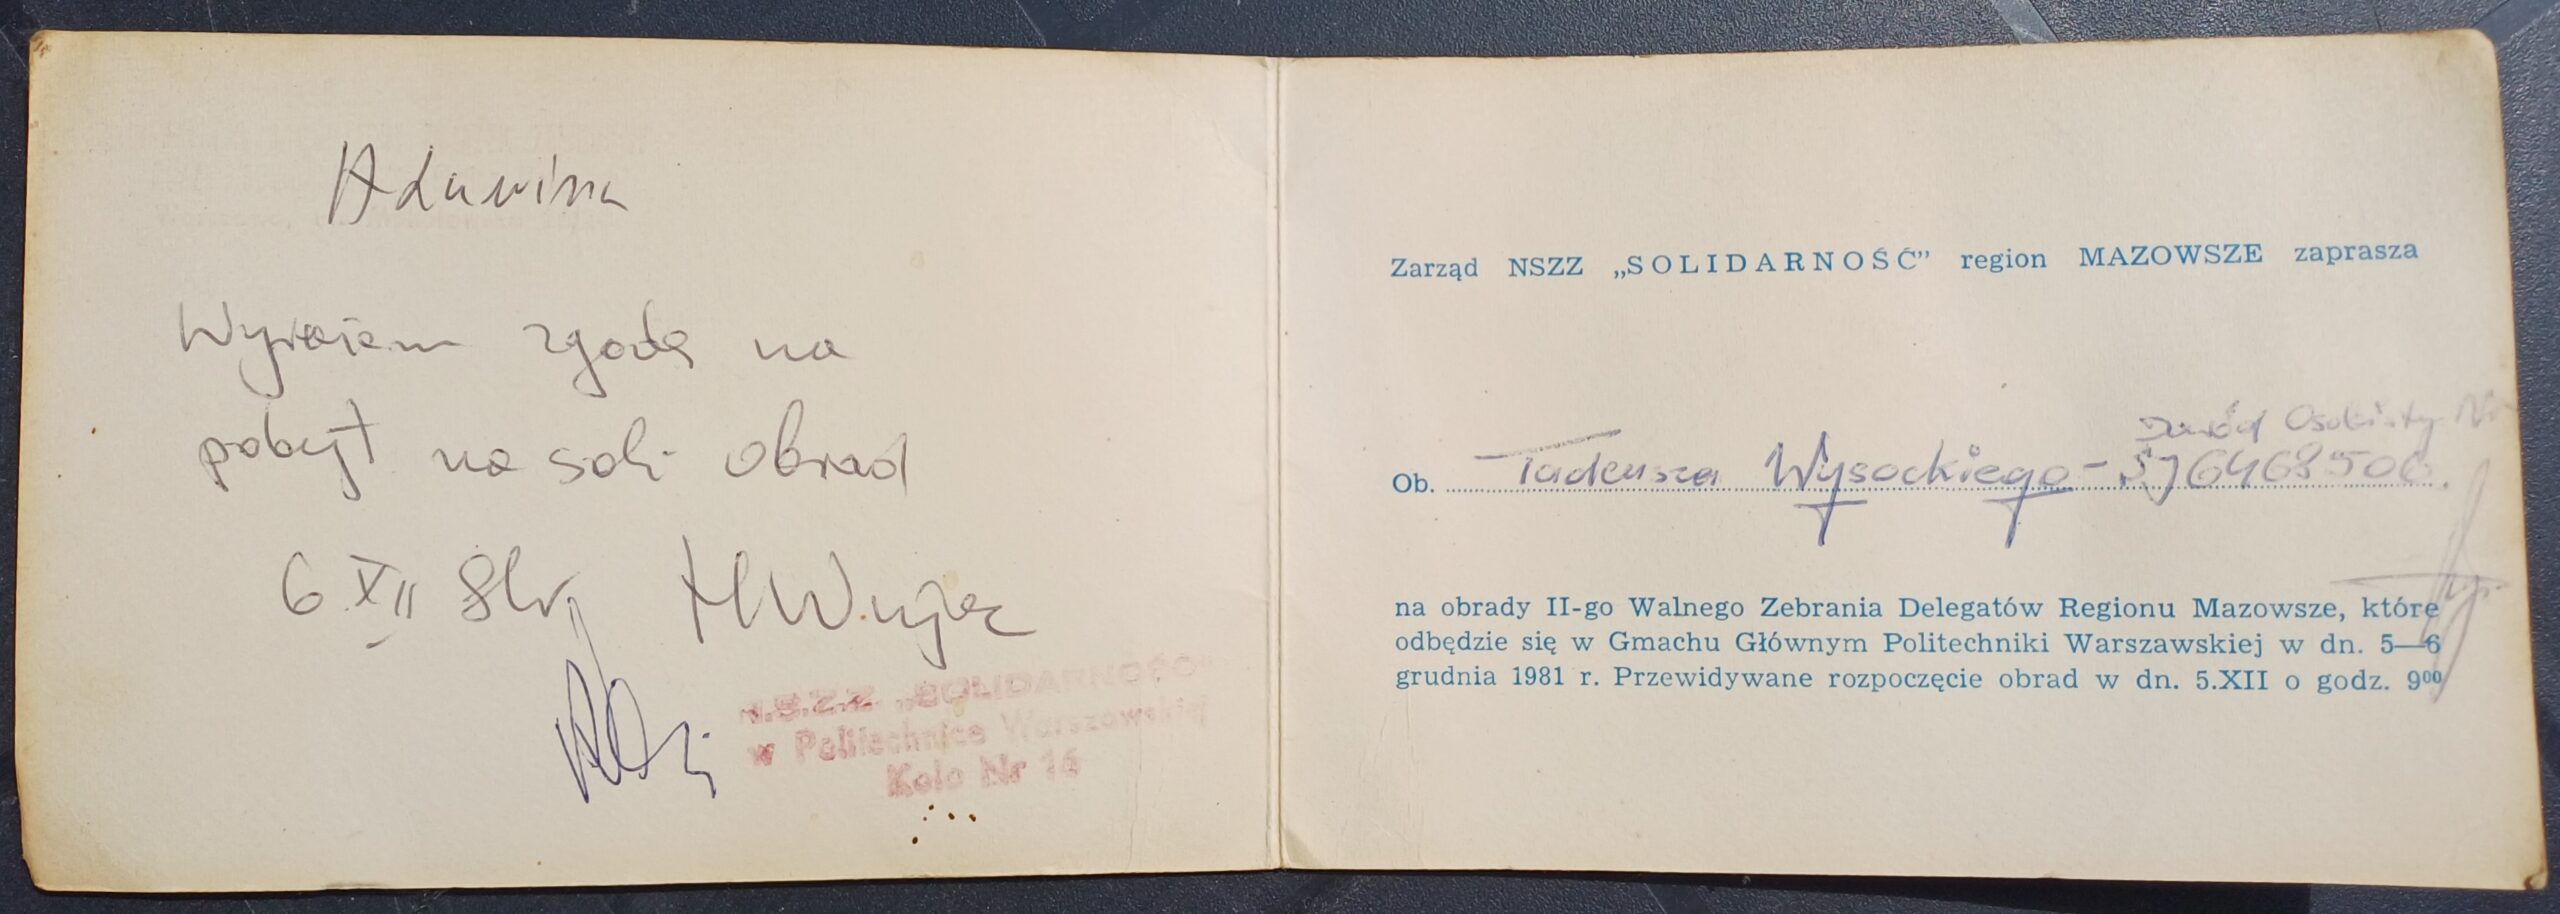 Wyrażam zgodę na
pobyt na sali obrad
6 XII 81r. HWujec
N.S.Z.Z. „SOLIDARNOŚĆ”
w Politechnice Warszawskiej
Koło Nr 16
Zarząd NSZZ „SOLIDARNOŚĆ” region MAZOWSZE zaprasza
Dowód Osobisty Nr
Ob. Tadeusza Wysockiego -
na obrady II-go Walnego Zebrania Delegatów Regionu Mazowsze, które
odbędzie się w Gmachu Głównym Politechniki Warszawskiej w dn. 5—6
grudnia 1981 r. Przewidywane rozpoczęcie obrad w dn. 5.XII o godz. 9⁰⁰